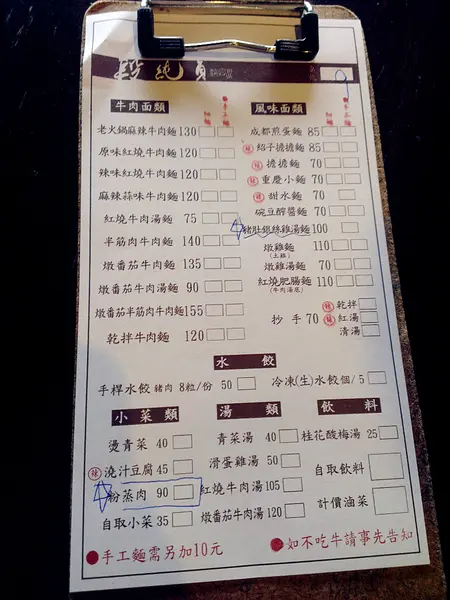 段純貞
牛肉面類
細麵 手工麵
老火鍋麻辣牛肉麵 130
原味紅燒牛肉麵 120
辣味紅燒牛肉麵 120
麻辣蒜味牛肉麵 120
紅燒牛肉湯麵 75
半筋肉牛肉麵 140
燉番茄牛肉麵 135
燉番茄牛肉湯麵 90
燉番茄半筋肉牛肉麵 155
乾拌牛肉麵 120
風味面類
細麵 手工麵
成都煎蛋麵 85
辣 紹子擔擔麵 85
辣 擔擔麵 70
辣 重慶小麵 70
辣 甜水麵 70
碗豆醡醬麵 70
豬肚銀絲雞湯麵 100
燉雞麵 110
(土雞)
燉雞湯麵 70
紅燒肥腸麵 110
(牛肉湯底)
抄手 70
辣 乾拌
辣 紅湯
清湯
水餃
手桿水餃 豬肉 8粒/份 50
冷凍(生)水餃 個/5
小菜類
燙青菜 40
辣 澆汁豆腐 45
粉蒸肉 90
自取小菜 35
湯類
青菜湯 40
滑蛋雞湯 50
紅燒牛肉湯 105
燉番茄牛肉湯 120
飲料
桂花酸梅湯 25
自取飲料
計價油菜
●手工麵需另加10元
●如不吃牛請事先告知